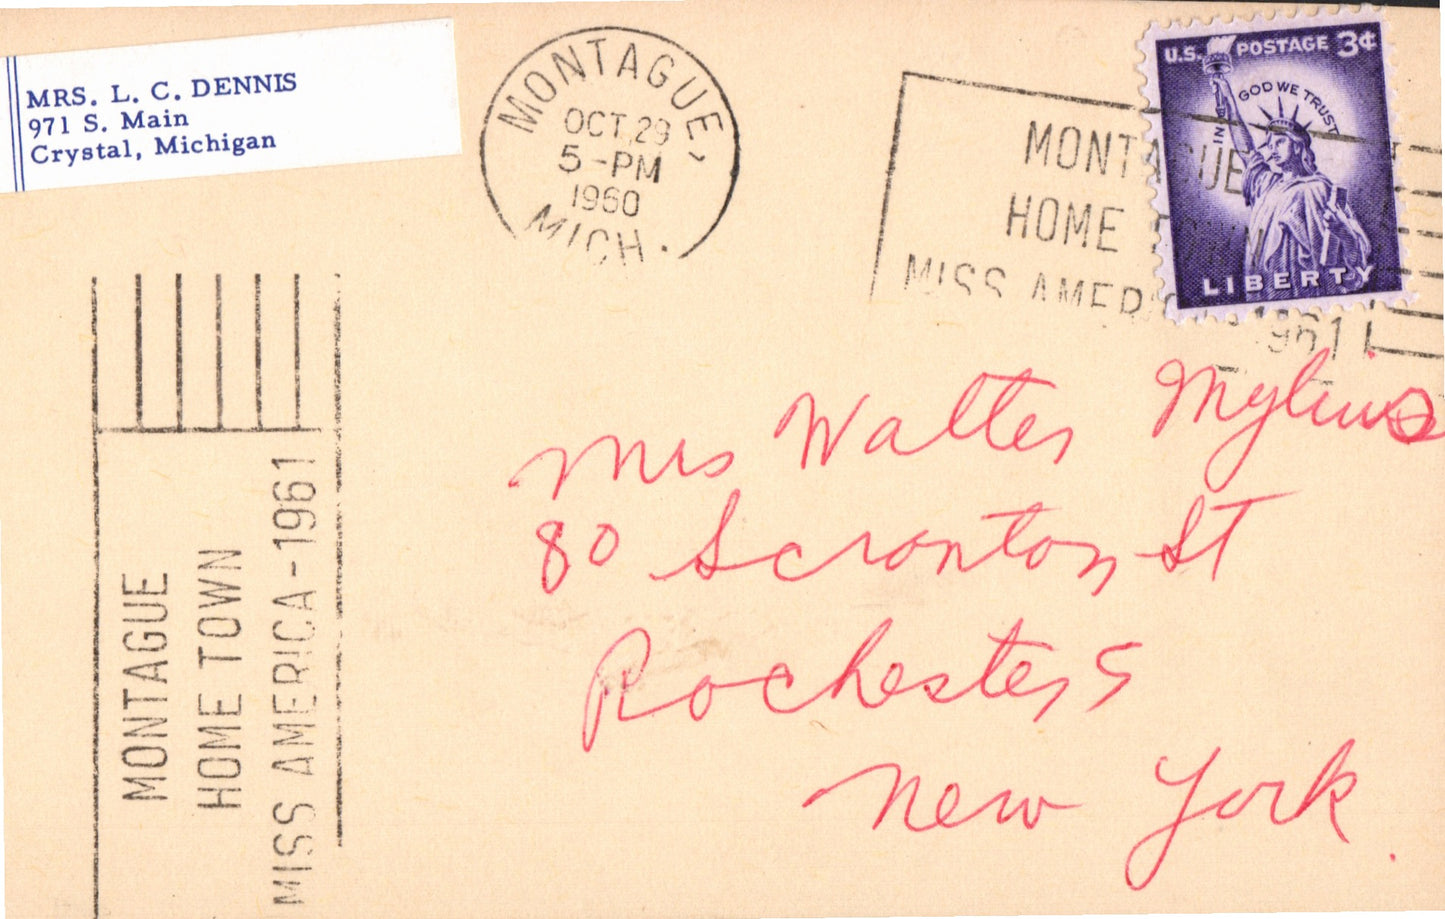 MRS. L. C. DENNIS
971 S. Main
Crystal, Michigan
MONTAGUE,
OCT 29
5-PM
1960
MICH.
MONTAGUE
HOME TOWN
MISS AMERICA-1961
U.S. POSTAGE 3¢
IN GOD WE TRUST
LIBERTY
Mrs Walter Mylius
80 Scranton St
Rochester 5
New York.
MONTAGUE
HOME TOWN
MISS AMERICA-1961